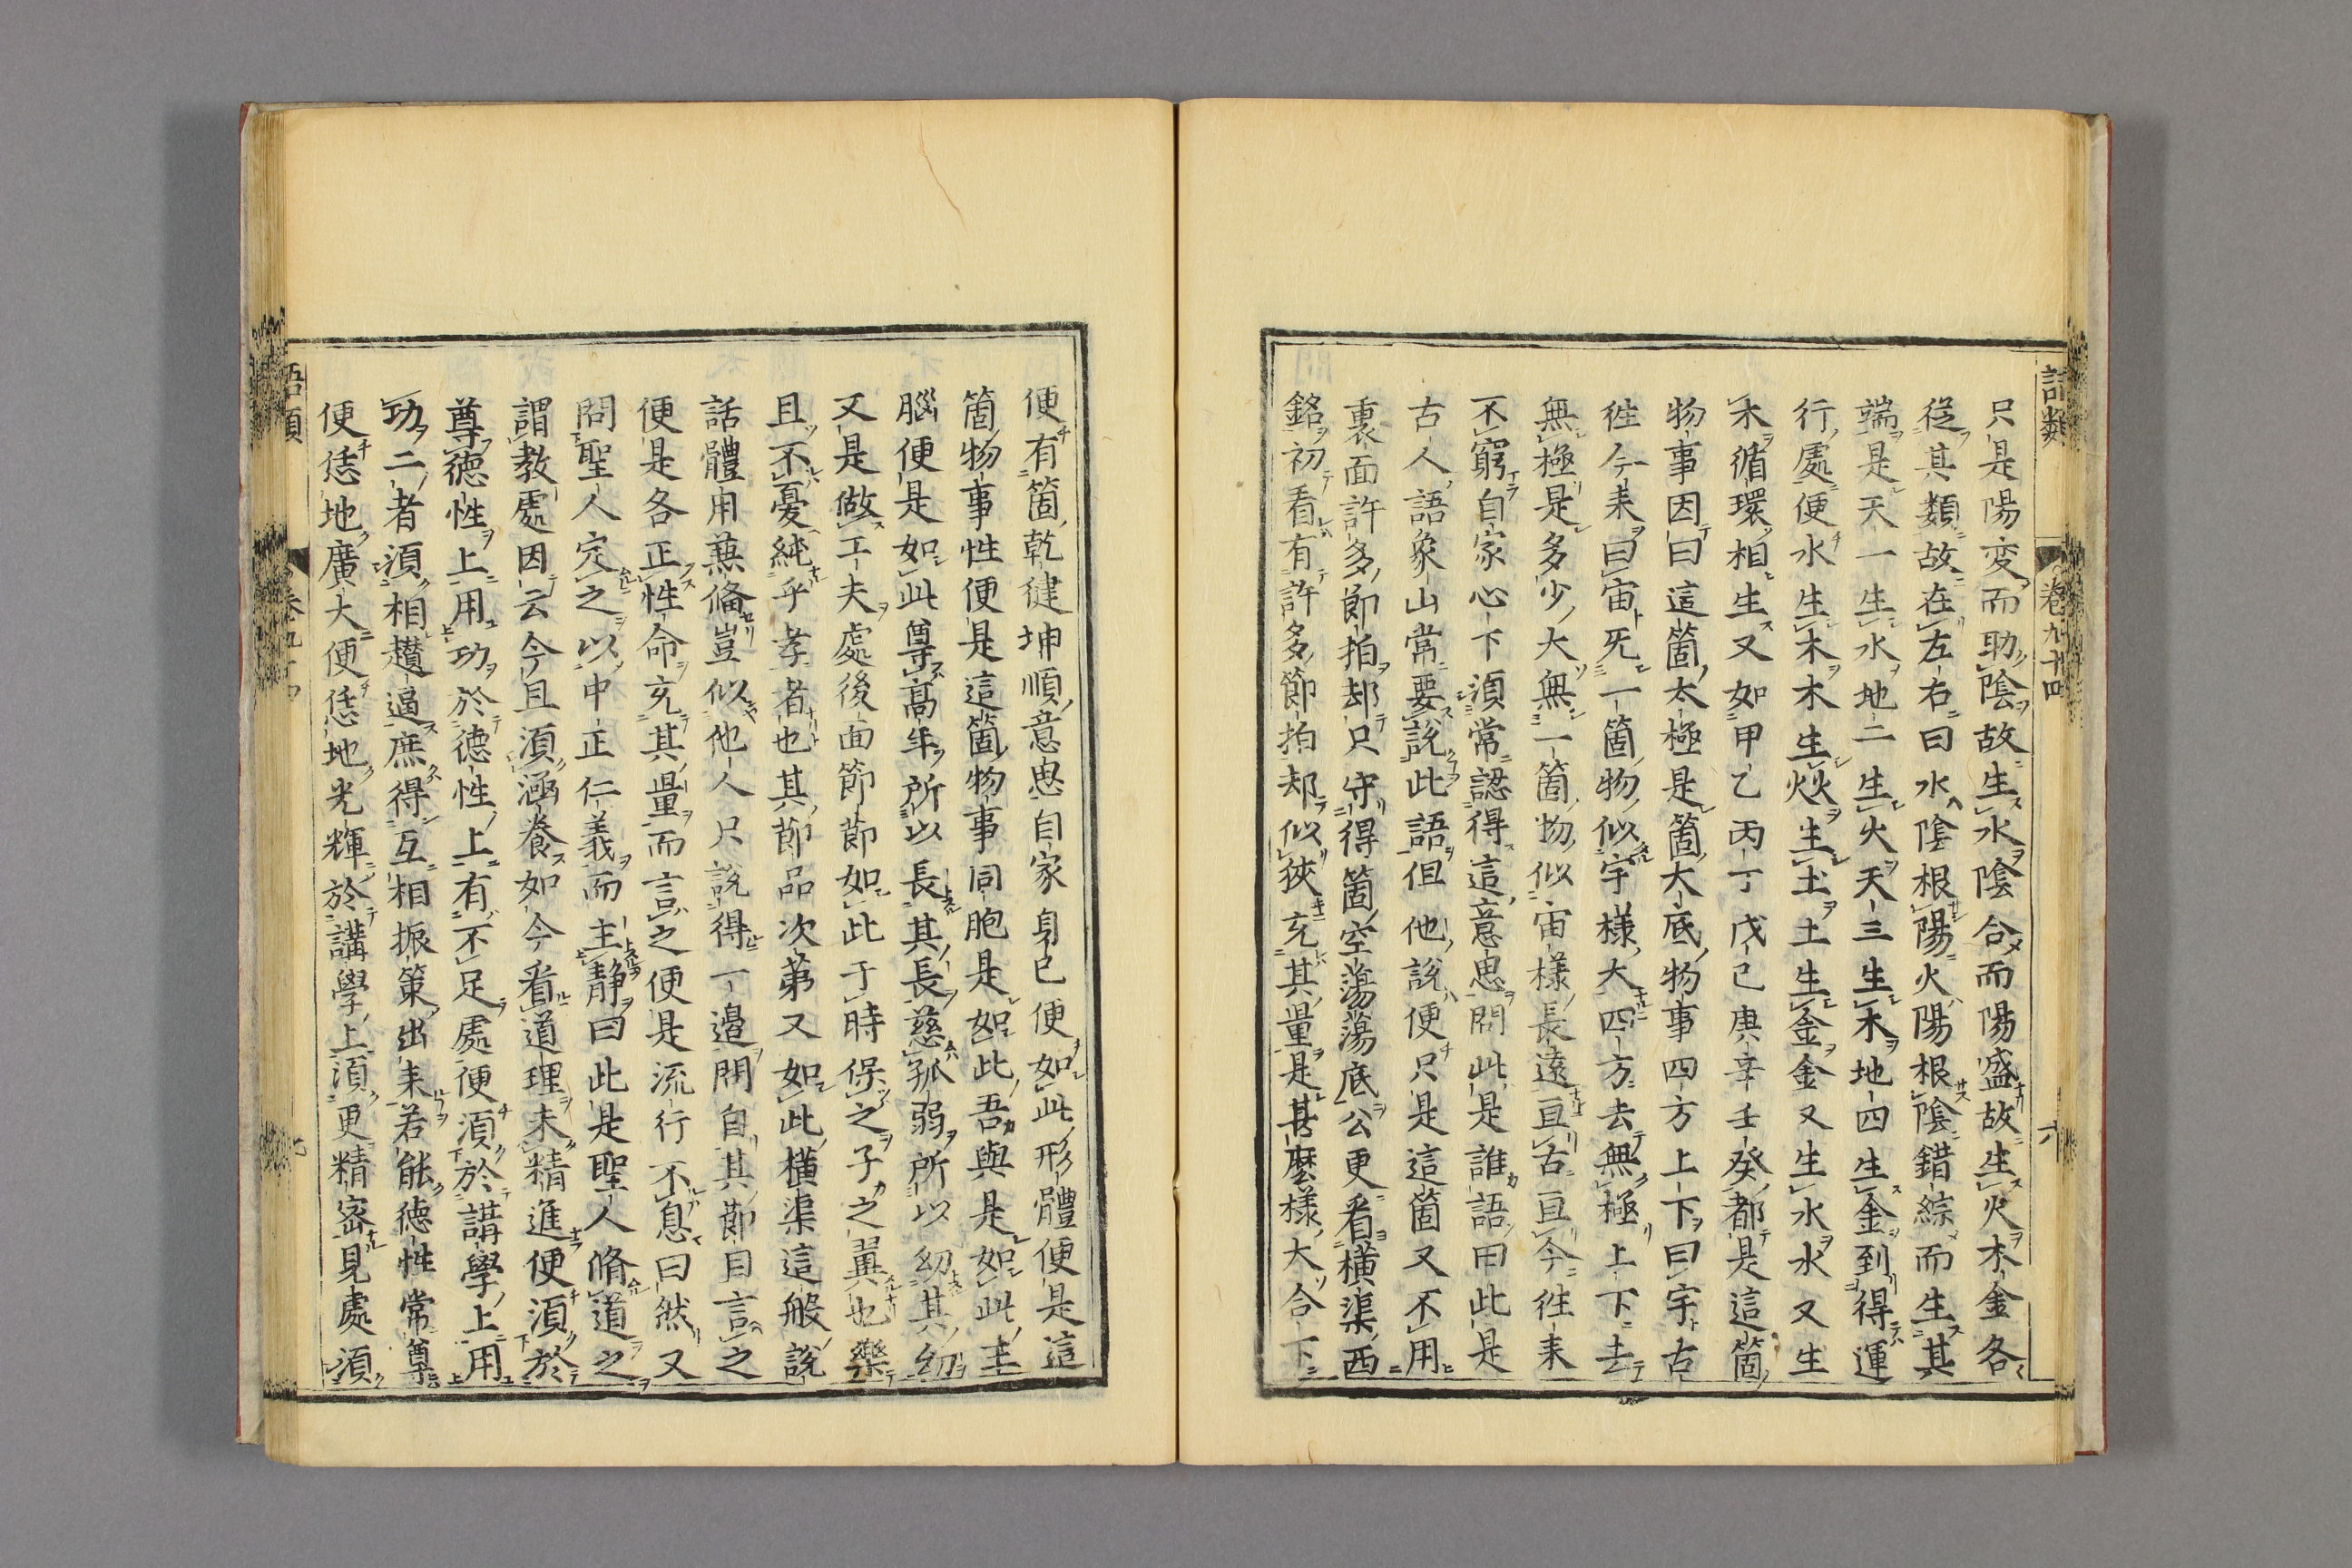 語類
卷九十四
六
只是陽变而助陰故生水陰合而陽盛故生火木金各
從其類故在左右曰水陰根陽火陽根陰錯綜而生其
端是天一生水地二生火天三生木地四生金到得運
行處便水生木木生火火生土土生金金又生水水又生
木循環相生又如甲乙丙丁戊己庚辛壬癸都是這箇
物事因曰這箇太極是箇大底物事四方上下曰宇古
徃今来曰宙无一箇物似宇樣大四方去無極上下去
無極是多少大無一箇物似宙樣長遠亘古亘今徃来
不窮自家心下須常認得這意思問此是誰語曰此是
古人語象山常要說此語但他說便只是這箇又不用
裏面許多節拍却只守得箇空蕩蕩底公更看橫渠西
銘初看有許多節拍却似狹充其量是甚麼樣大合下
便有箇乾健坤順意思自家身已便如此形體便是這
箇物事性便是這箇物事同胞是如此吾與是如此主
腦便是如此尊高年所以長其長慈孤弱所以幼其幼
又是做工夫處後面節節如此于時保之子之翼也樂
且不憂純乎孝者也其節品次第又如此橫渠這般說
話體用兼備豈似他人只說得一邊問自其節目言之
便是各正性命充其量而言之便是流行不息曰然又
問聖人定之以中正仁義而主静曰此是聖人脩道之
謂教處因云今且須涵養如今看道理未精進便須於
尊德性上用功於德性上有不足處便須於講學上用
功二者須相趲逼庶得互相振策出来若能德性常尊
便恁地廣大便恁地光輝於講學上須更精密見處須
語類